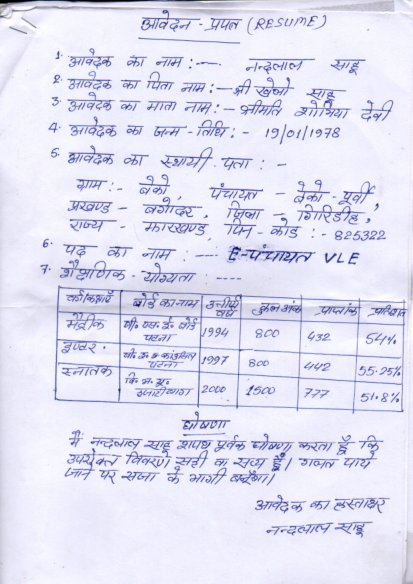 आवेदन - प्रपत्र (RESUME)
1. आवेदक का नाम :--- नन्दलाल साहू
2. आवेदक का पिता नाम :- श्री खेखो साहू
3. आवेदक का माता नाम :- श्रीमति शोभिया देवी
4. आवेदक का जन्म - तिथि : - 19/01/1978
5. आवेदक का स्थायी पता : -
ग्राम :- बेको, पंचायत - बेको पूर्वी,
प्रखण्ड - बगोदर, जिला - गिरिडीह,
राज्य - झारखण्ड, पिन - कोड : - 825322
6. पद का नाम : --- E-पंचायत VLE
7. शैक्षणिक - योग्यता : ----
बोर्ड का नाम उत्तीर्ण वर्ष कुल अंक प्राप्तांक प्रतिशत
मैट्रीक बोर्ड पटना 1994 800 432 54%
इण्टर पटना 1997 800 442 55.25%
स्नातक हजारीबाग 2000 1500 777 51.8%
घोषणा
मैं नन्दलाल साहू शपथ पूर्वक घोषणा करता हूँ कि
उपरोक्त विवरण सही वा सत्य हैं। गलत पाये
जाने पर सजा के भागी बनूँगा।
आवेदक का हस्ताक्षर
नन्दलाल साहू